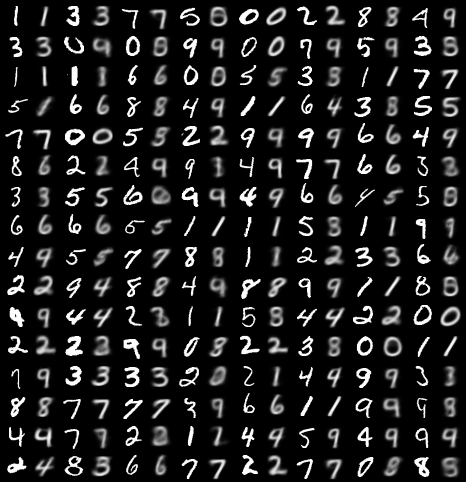 1 1 3 3 7 7 5 8 0 0 2 2 8 8 4 9
3 3 0 9 0 8 9 9 0 0 7 9 5 9 3 8
1 1 1 1 6 6 0 0 5 5 3 3 1 1 7 7
5 1 6 6 8 8 4 9 1 1 6 4 3 8 5 5
7 7 0 0 5 3 2 2 9 9 9 9 6 6 4 9
8 6 2 2 4 9 9 3 4 9 7 7 6 6 3 3
3 3 5 5 6 0 9 9 4 9 6 6 4 5 5 8
6 6 6 6 5 5 1 1 1 1 5 3 1 1 9 9
4 9 5 5 7 7 8 8 1 1 2 2 3 3 6 6
2 2 9 4 8 8 4 9 8 8 9 9 1 1 8 8
9 9 4 4 2 3 1 1 5 8 4 4 2 2 0 0
2 2 2 2 9 9 0 8 2 2 3 8 0 0 1 1
7 9 3 3 3 3 2 0 2 1 4 9 9 9 3 3
8 8 7 7 7 7 3 9 6 6 1 1 9 9 9 8
4 4 7 7 2 1 1 4 4 5 9 4 9 9 9
2 4 8 3 6 6 7 7 2 2 7 7 0 8 8